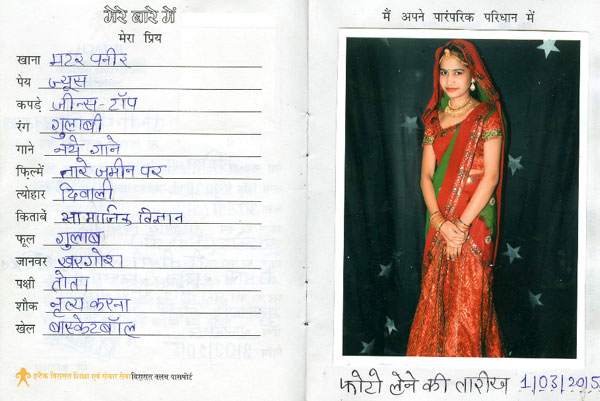 मेरे बारे में
मेरा प्रिय
खाना मटर पनीर
पेय ज्यूस
कपड़े जीन्स-टॉप
रंग गुलाबी
गाने नये गाने
फिल्में तारे जमीन पर
त्योहार दिवाली
किताबें सामाजिक विज्ञान
फूल गुलाब
जानवर खरगोश
पक्षी तोता
शौक नृत्य करना
खेल बास्केटबॉल
इन्टैक विरासत शिक्षा एवं संचार सेवा विरासत क्लब पासपोर्ट
मैं अपने पारंपरिक परिधान में
फोटो लेने की तारीख 1/03/2015